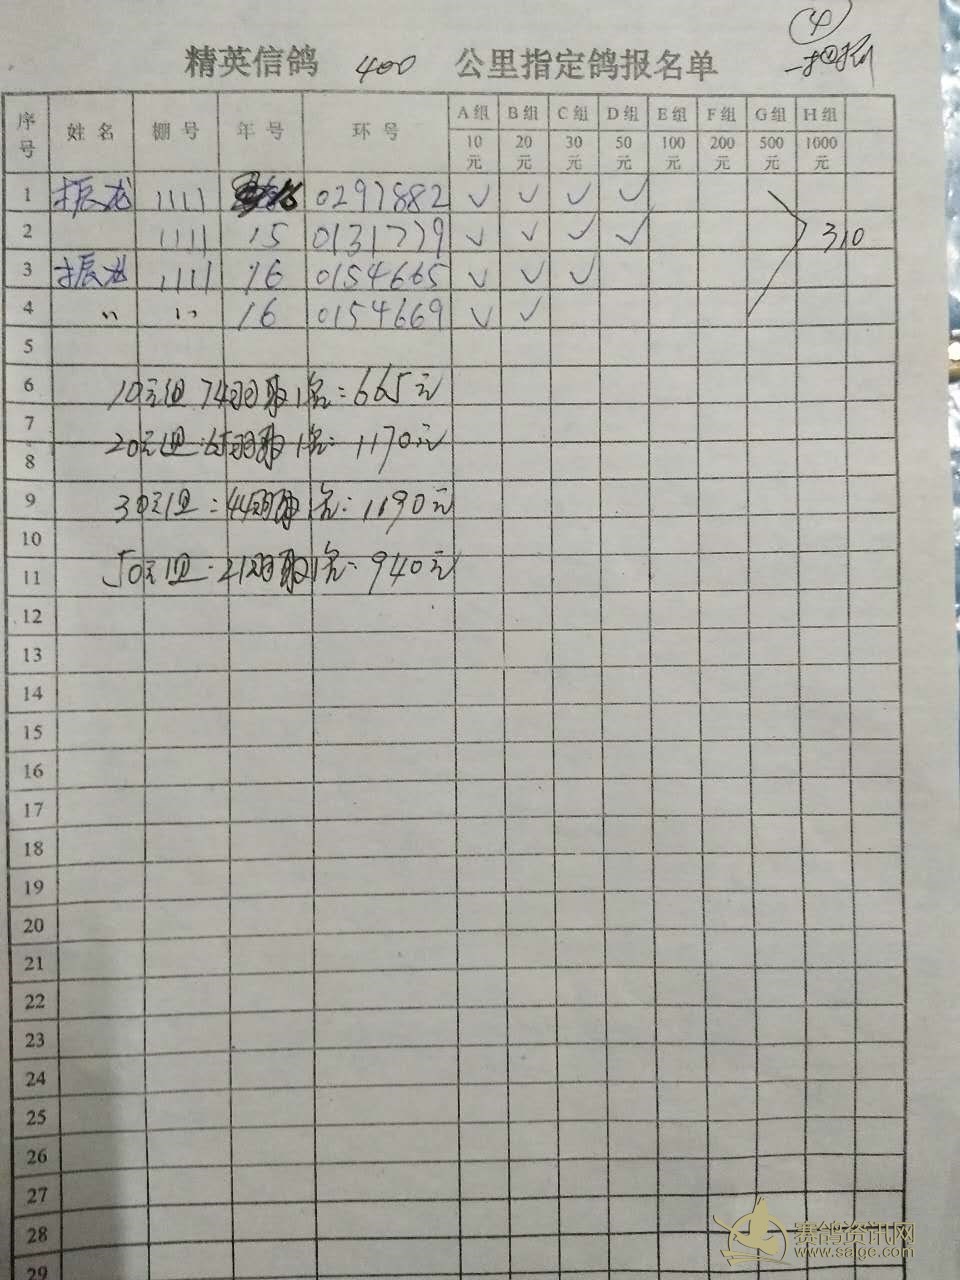 4
精英信鸽 400 公里指定鸽报名单
序号 姓名 棚号 年号 环号 A组 B组 C组 D组 E组 F组 G组 H组
10元 20元 30元 50元 100元 200元 500元 1000元
1 振龙 1111 0297882 ✓ ✓ ✓ ✓
2 1111 15 0131779 ✓ ✓ ✓ ✓ 310
3 振龙 1111 16 0154665 ✓ ✓ ✓
4 〃 〃 16 0154669 ✓ ✓
5
6 10元组 74羽取1名：665元
7
20元组：65羽取1名：1170元
8
9 30元组：44羽取1名：1190元
10
11 50元组：21羽取1名：940元
12
13
14
15
16
17
18
19
20
21
22
23
24
25
26
27
28
29
赛鸽资讯网
www.saige.com